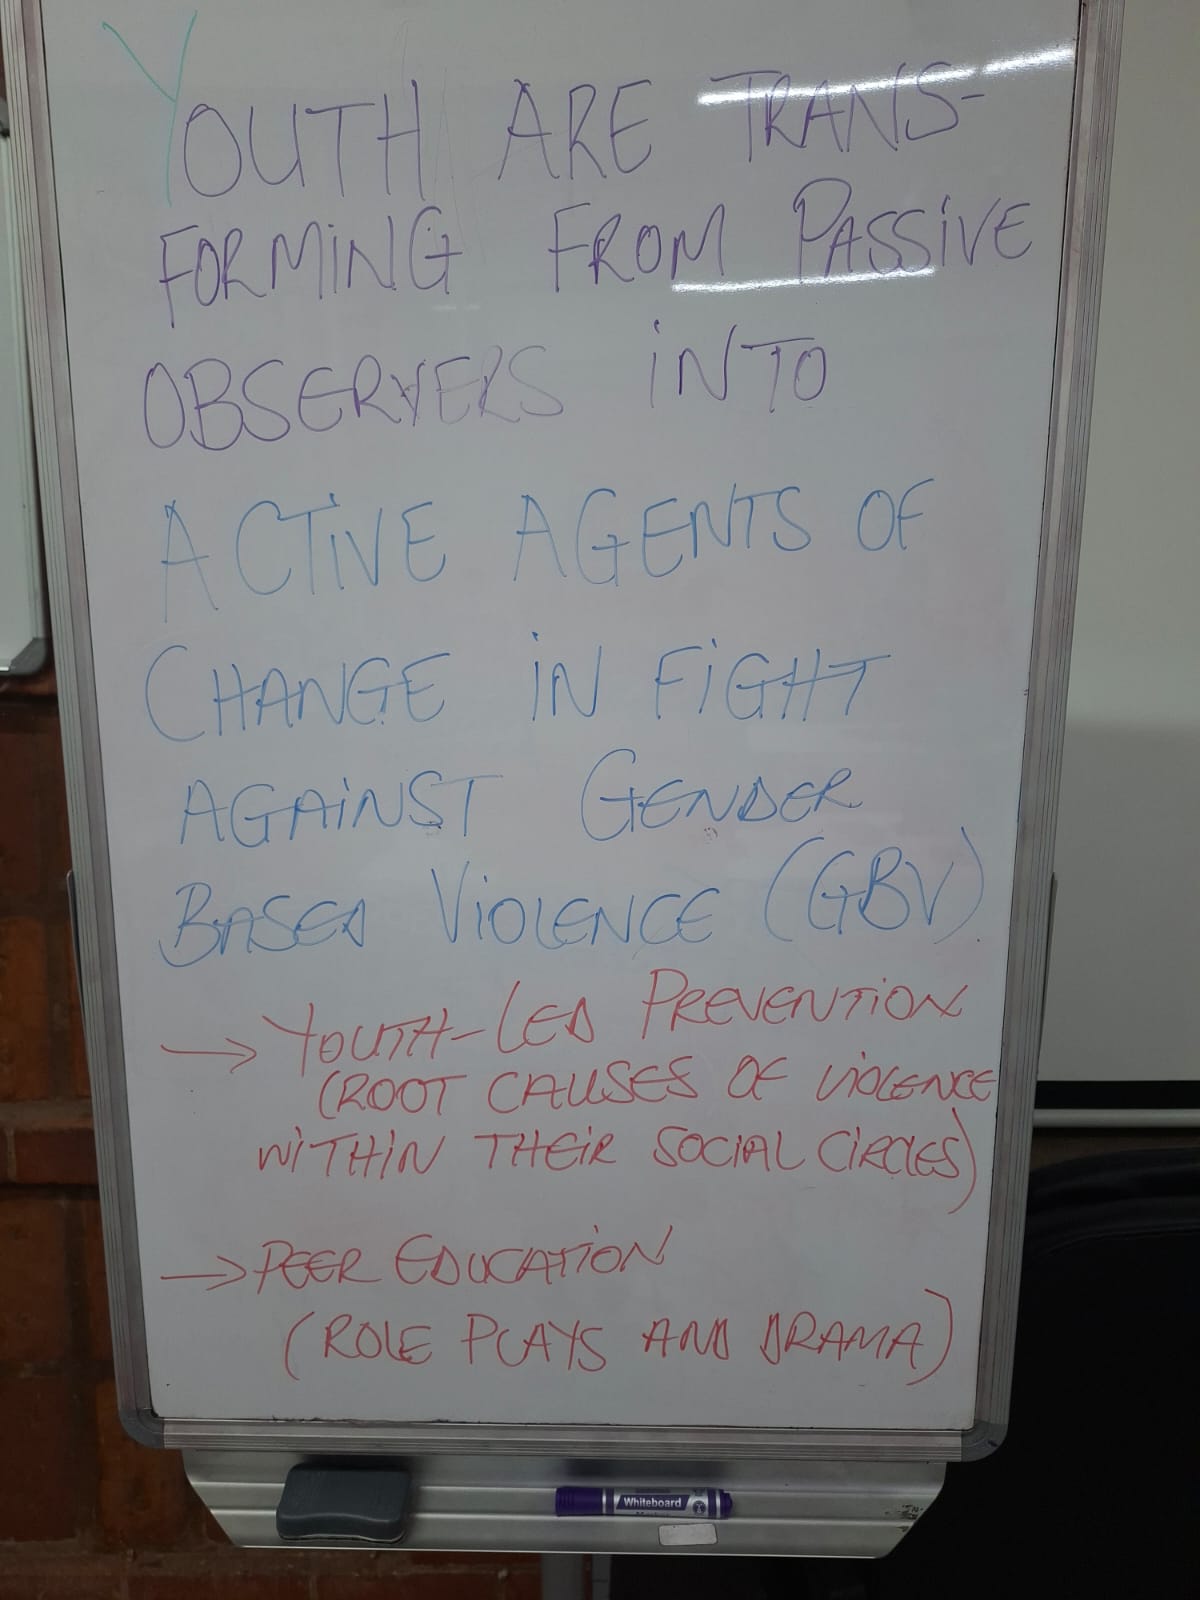 YOUTH ARE TRANS-
FORMING FROM PASSIVE
OBSERVERS INTO
ACTIVE AGENTS OF
CHANGE IN FIGHT
AGAINST GENDER
BASED VIOLENCE (GBV)
→ YOUTH-LED PREVENTION
(ROOT CAUSES OF VIOLENCE
WITHIN THEIR SOCIAL CIRCLES)
→ PEER EDUCATION
(ROLE PLAYS AND DRAMA)
Whiteboard